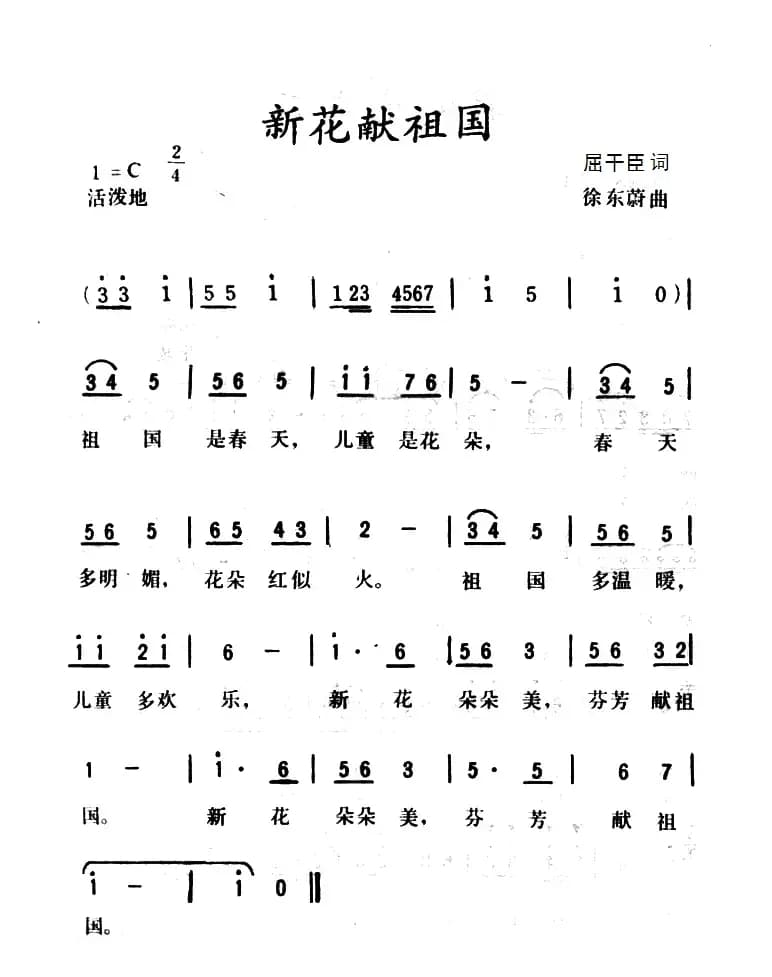 新花献祖国
1=C 2/4
屈干臣词
活泼地
徐东蔚曲
(3̇3̇ 1̇ | 55 1̇ | 123 4567 | 1̇ 5 | 1̇ 0)|
34 5 | 56 5 | 1̇1̇ 76 | 5 - | 34 5 |
祖 国 是春 天， 儿童 是花 朵， 春 天
56 5 | 65 43 | 2 - | 34 5 | 56 5 |
多明 媚， 花朵 红似 火。 祖 国 多温 暖，
1̇1̇ 2̇1̇ | 6 - | 1̇· 6 | 56 3 | 56 32|
儿童 多欢 乐， 新 花 朵朵 美， 芬芳 献祖
1 - | 1̇· 6 | 56 3 | 5· 5 | 6 7 |
国。 新 花 朵朵 美， 芬 芳 献 祖
1̇ - | 1̇ 0 ‖
国。